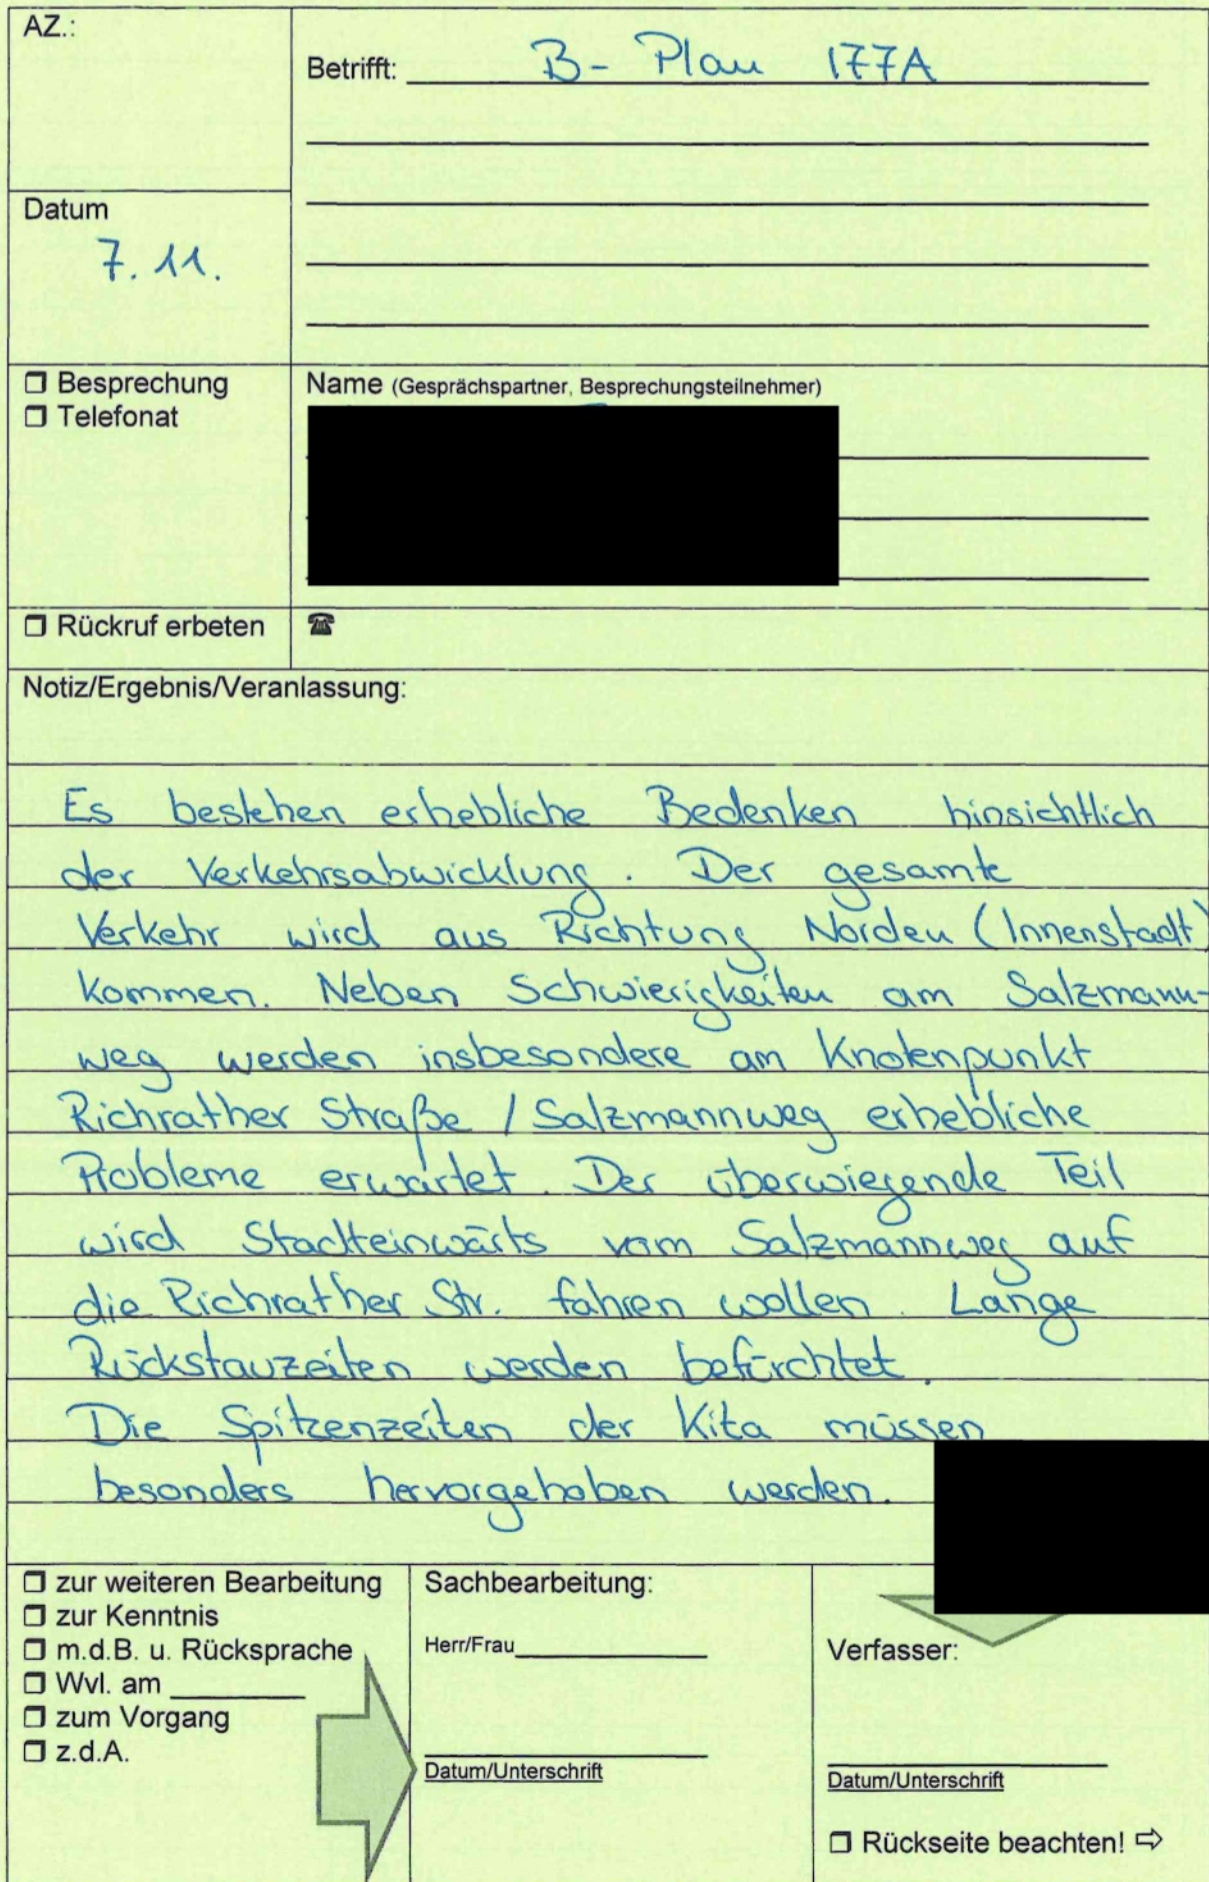 AZ.:
Betrifft: B- Plan 177A
Datum
7.11.
☐ Besprechung
☐ Telefonat
Name (Gesprächspartner, Besprechungsteilnehmer)
☐ Rückruf erbeten ☎
Notiz/Ergebnis/Veranlassung:
Es bestehen erhebliche Bedenken hinsichtlich
der Verkehrsabwicklung. Der gesamte
Verkehr wird aus Richtung Norden (Innenstadt)
kommen. Neben Schwierigkeiten am Salzmann-
weg werden insbesondere am Knotenpunkt
Richrather Straße / Salzmannweg erhebliche
Probleme erwartet. Der überwiegende Teil
wird Stadteinwärts vom Salzmannweg auf
die Richrather Str. fahren wollen. Lange
Rückstauzeiten werden befürchtet.
Die Spitzenzeiten der Kita müssen
besonders hervorgehoben werden.
☐ zur weiteren Bearbeitung
☐ zur Kenntnis
☐ m.d.B. u. Rücksprache
☐ Wvl. am
☐ zum Vorgang
☐ z.d.A.
Sachbearbeitung:
Herr/Frau
Datum/Unterschrift
Verfasser:
Datum/Unterschrift
☐ Rückseite beachten! ⇨